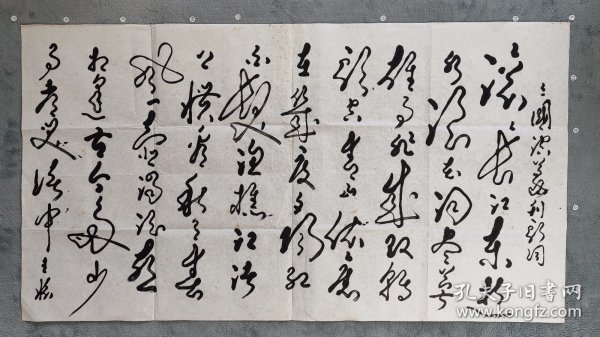 三國演義
滚滚长江东逝
水浪花淘尽英
雄是非成败转
头空青山依旧
在几度夕阳红
白发渔樵江渚
上惯看秋月春
风一壶浊酒喜
相逢古今多少
事笑谈中
孔夫子旧书网
www.kongfz.com